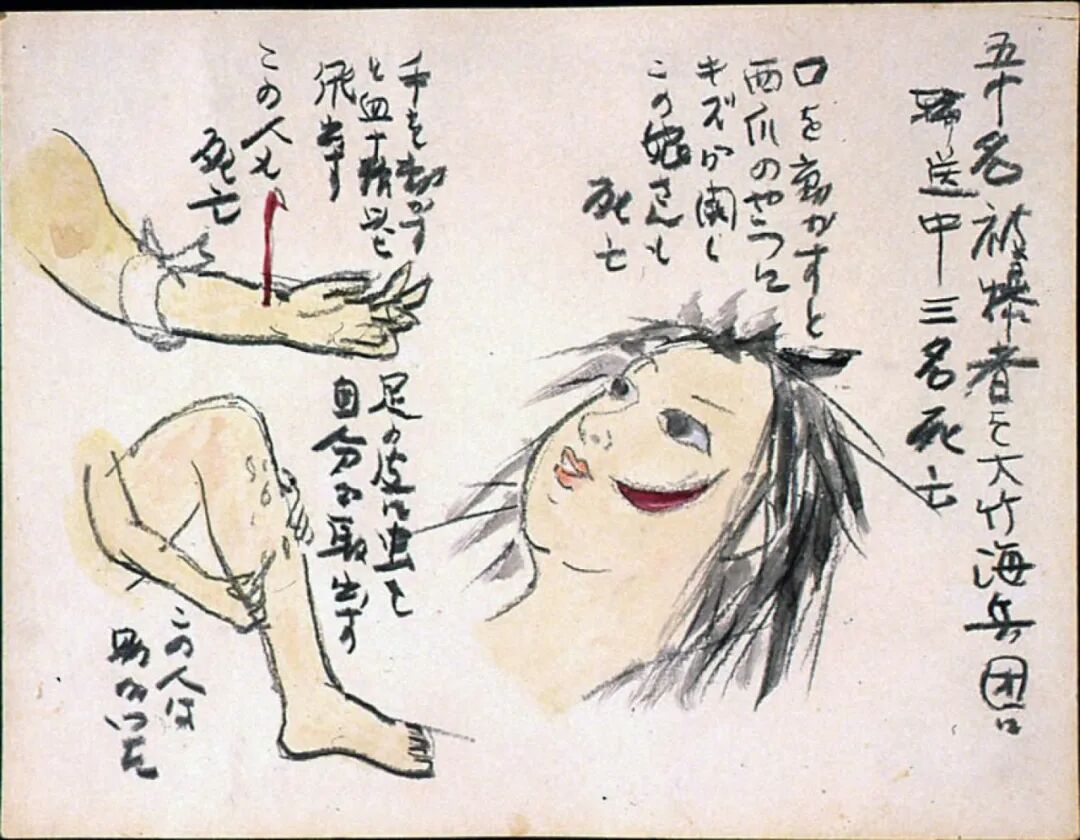 五十名 被爆者を大竹海兵団に
輸送中三名死亡
口を動かすと
西爪のやうに
キズが開く
この娘さんも
死亡
手を動かす
と血十糎ほど
飛出す
この人も
死亡
足の皮に虫を
自分で取出す
この人は